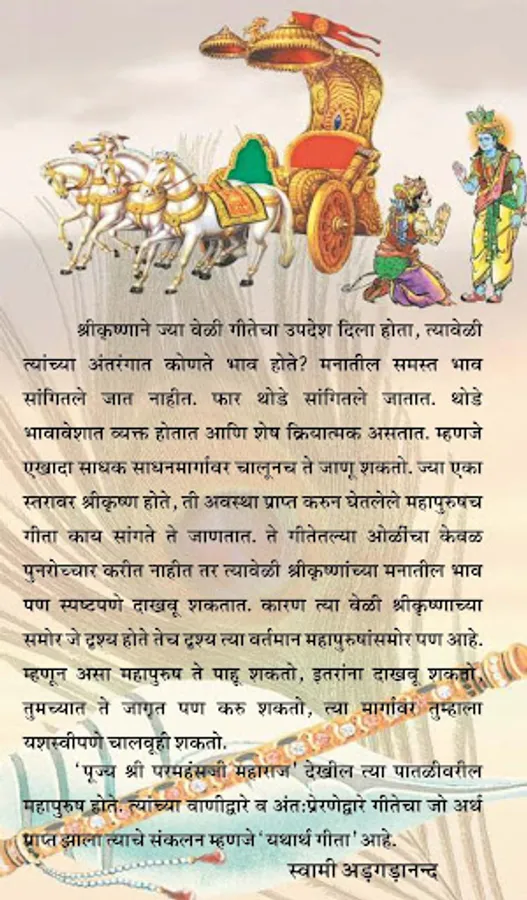 श्रीकृष्णाने ज्या वेळी गीतेचा उपदेश दिला होता, त्यावेळी
त्यांच्या अंतरंगात कोणते भाव होते? मनातील समस्त भाव
सांगितले जात नाहीत. फार थोडे सांगितले जातात. थोडे
भावावेशात व्यक्त होतात आणि शेष क्रियात्मक असतात. म्हणजे
एखादा साधक साधनमार्गावर चालूनच ते जाणू शकतो. ज्या एका
स्तरावर श्रीकृष्ण होते, ती अवस्था प्राप्त करुन घेतलेले महापुरुषच
गीता काय सांगते ते जाणतात. ते गीतेतल्या ओळींचा केवळ
पुनरोच्चार करीत नाहीत तर त्यावेळी श्रीकृष्णांच्या मनातील भाव
पण स्पष्टपणे दाखवू शकतात. कारण त्या वेळी श्रीकृष्णाच्या
समोर जे दृश्य होते तेच दृश्य त्या वर्तमान महापुरुषांसमोर पण आहे.
म्हणून असा महापुरुष ते पाहू शकतो, इतरांना दाखवू शकतो,
तुमच्यात ते जागृत पण करु शकतो, त्या मार्गावर तुम्हाला
यशस्वीपणे चालवूही शकतो.
‘पूज्य श्री परमहंसजी महाराज’ देखील त्या पातळीवरील
महापुरुष होते. त्यांच्या वाणीद्वारे व अंत:प्रेरणेद्वारे गीतेचा जो अर्थ
प्राप्त झाला त्याचे संकलन म्हणजे ‘यथार्थ गीता’ आहे.
स्वामी अड़गड़ानन्द